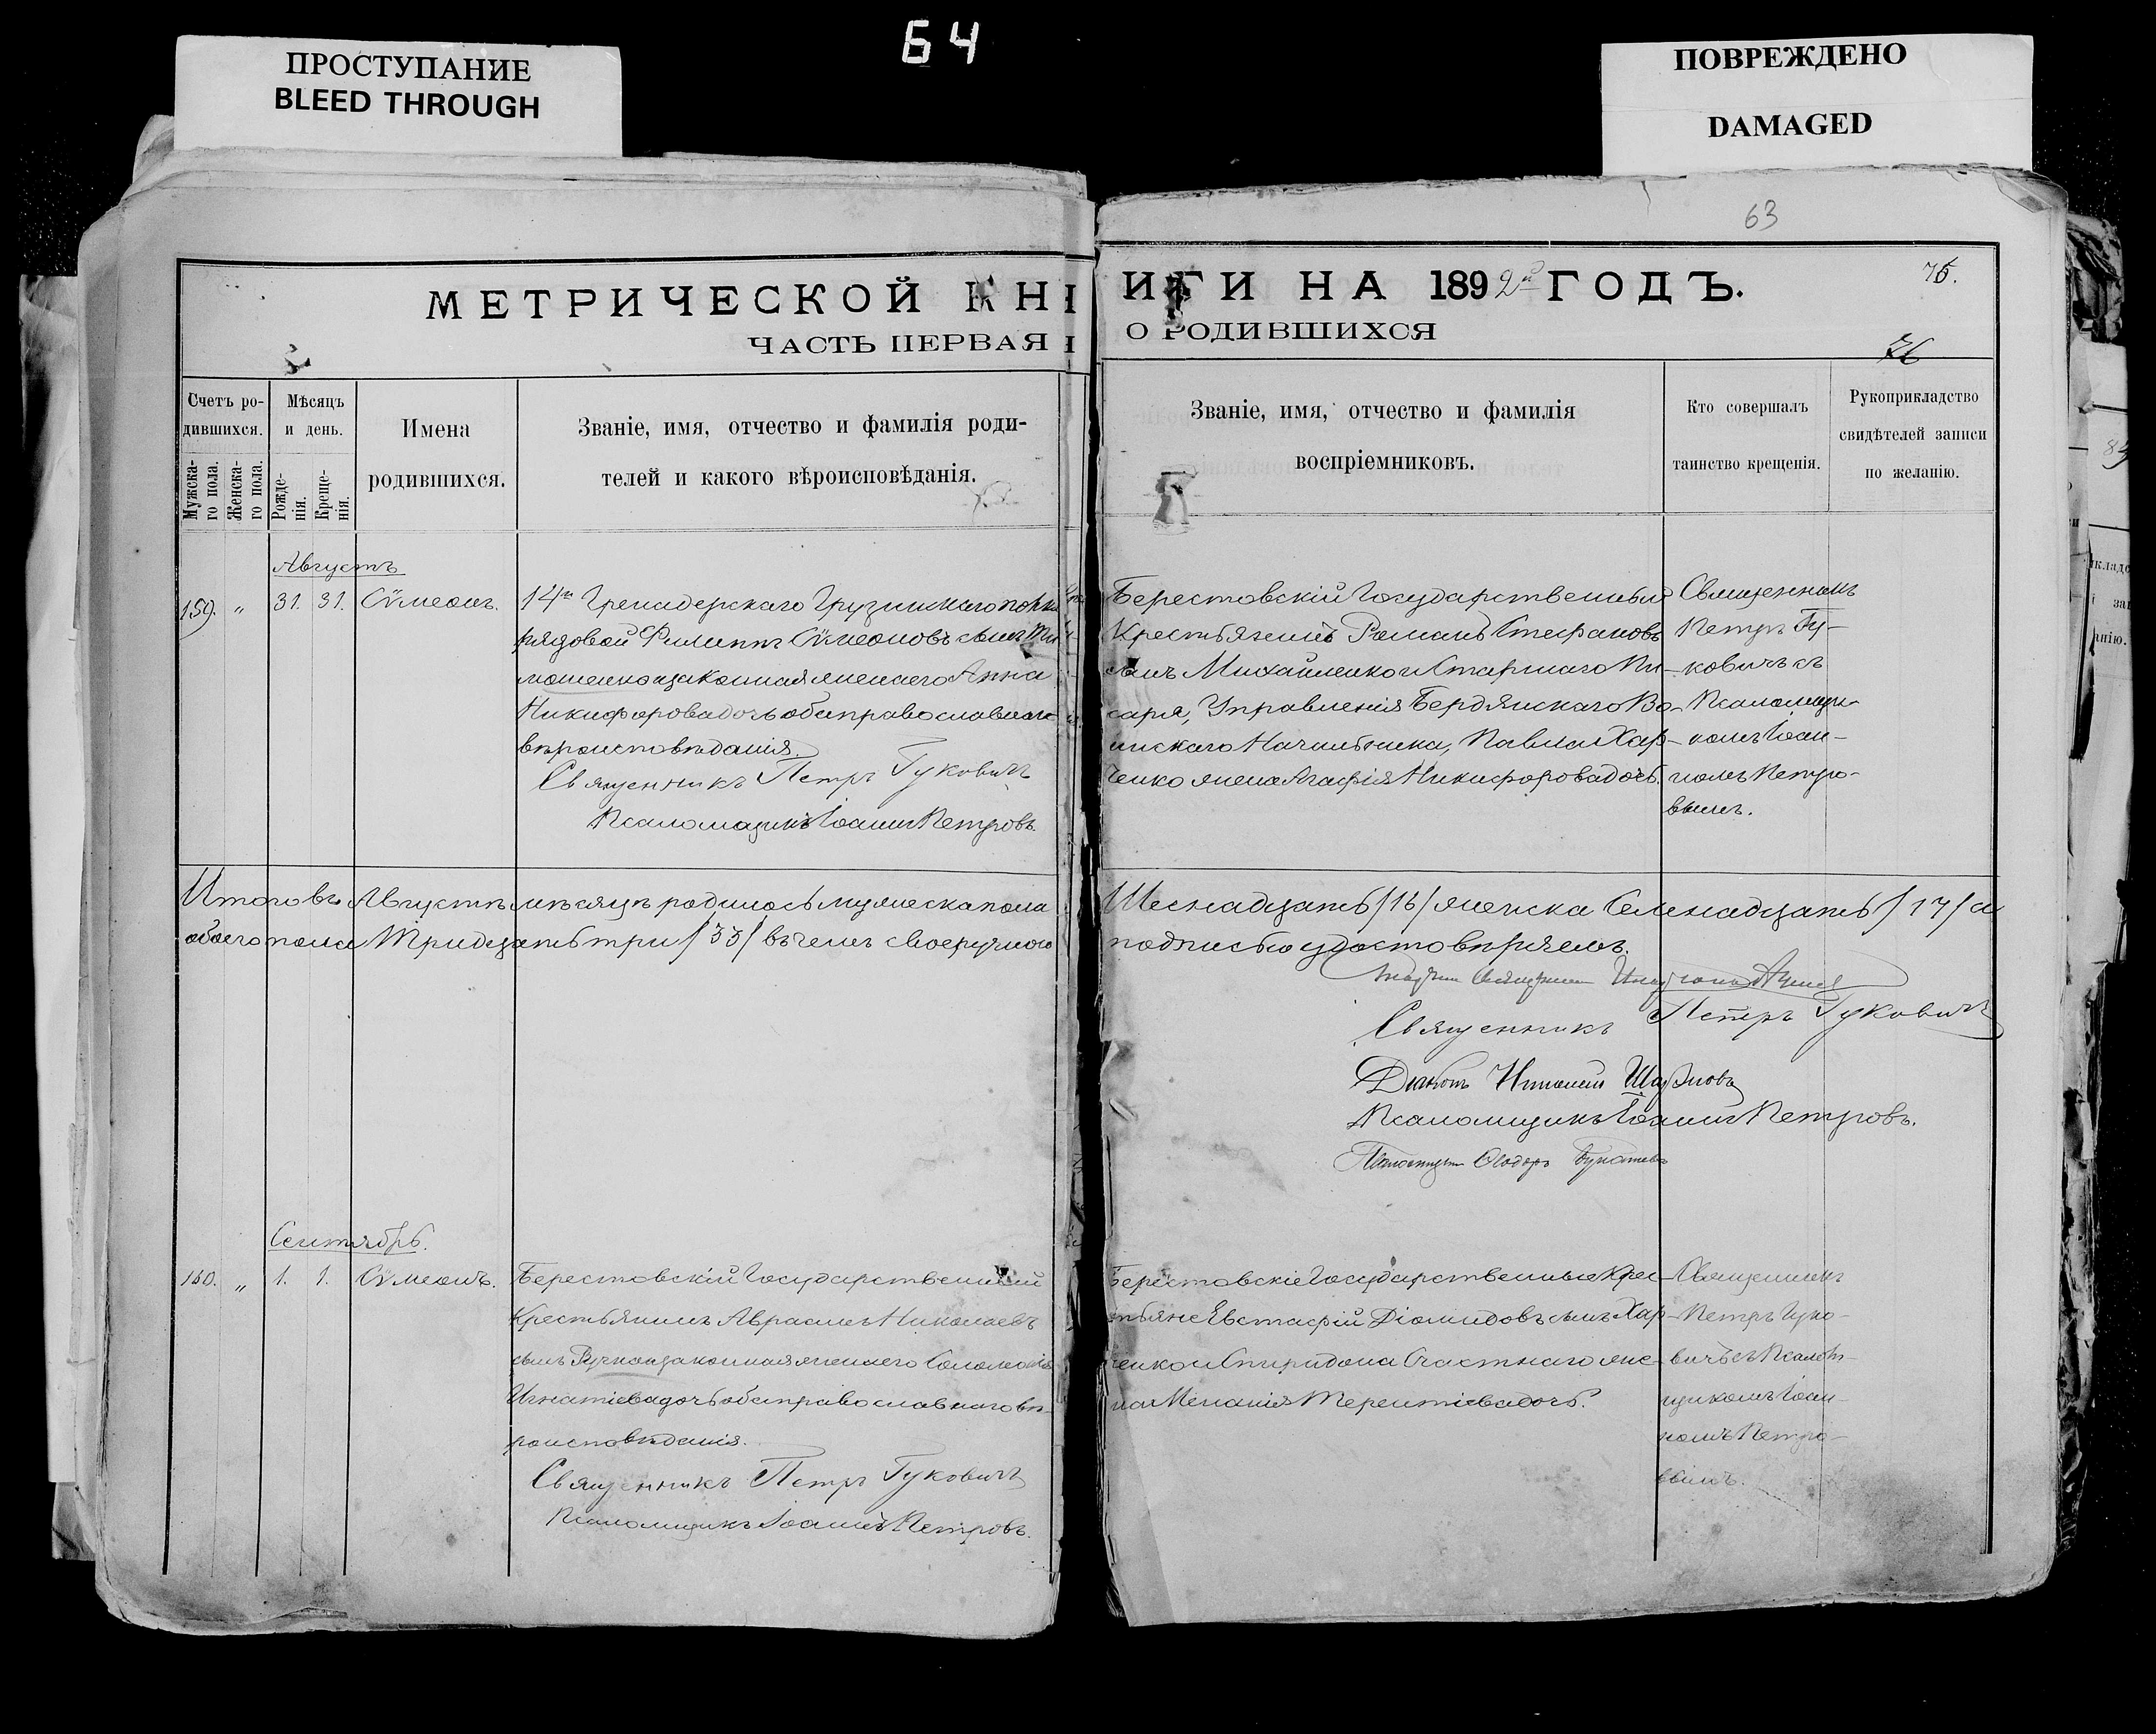 64
ПРОСТУПАНИЕ
BLEED THROUGH
ПОВРЕЖДЕНО
DAMAGED
63
МЕТРИЧЕСКОЙ КНИГИ НА 1892й ГОДЪ.
75.
ЧАСТЬ ПЕРВАЯ О РОДИВШИХСЯ
76
Счетъ ро-
дившихся.
Мужска-
го пола.
Женска-
го пола.
Мѣсяцъ
и день.
Рожде-
нія.
Креще-
нія.
Имена
родившихся.
Званіе, имя, отчество и фамилія роди-
телей и какого вѣроисповѣданія.
Званіе, имя, отчество и фамилія
воспріемниковъ.
Кто совершалъ
таинство крещенія.
Рукоприкладство
свидѣтелей записи
по желанію.
Августъ
159. „ 31. 31. Сѵмеонъ.
14го Гренадерскаго Грузинскаго полка
рядовой Филиппъ Сѵмеоновъ сынъ Ти
мошенко и законная жена его Анна
Никифорова дочь оба православнаго
вѣроисповѣданія.
Священникъ Петръ Гуковичъ
Псаломщикъ Іоаннъ Петровъ.
Берестовскій Государственный
Крестьянинъ Романъ Стефановъ
сынъ Михайленко и Старшаго Пи-
саря, Управленія Бердянскаго Во-
инскаго Начальника, Павла Хар-
ченко жена Агафія Никифорова дочь.
Священникъ
Петръ Гу-
ковичъ съ
Псаломщи-
комъ Іоан-
номъ Петро-
вымъ.
Итого въ Августѣ мѣсяцѣ родилось мужеска пола
Шеснадцать /16/ женска Семнадцать /17/ а
обоего пола Тридцать три /33/ въ чемъ своеручною
подписью удостовѣряемъ.
Священникъ Петръ Гуковичъ
Псаломщикъ Іоаннъ Петровъ.
Сентябрь.
160. „ 1. 1. Сѵмеонъ.
Берестовскій Государственный
Крестьянинъ Авраамъ Николаевъ
сынъ и законная жена его Соломонія
Игнатіева дочь оба православнаго вѣ-
роисповѣданія.
Священникъ Петръ Гуковичъ
Псаломщикъ Іоаннъ Петровъ.
Берестовскіе Государственные Крес-
тьяне Евстафій Діомидовъ сынъ Хар-
ченко и Спиридона Счастнаго же-
на Меланія Терентіева дочь.
Священникъ
Петръ Гуко-
вичъ съ Псалом-
щикомъ Іоан-
номъ Петро-
вымъ.